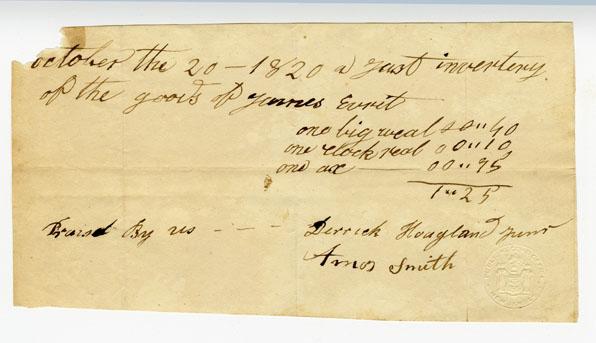 october the 20 - 1820 a Just invertery
of the goods of James Evrit
one big weal $ 0"40
one clock real 0 0"10
one ax — 0 0"75
1"25
Praisd By us - - - Derrick Hoagland Junr
Amos Smith